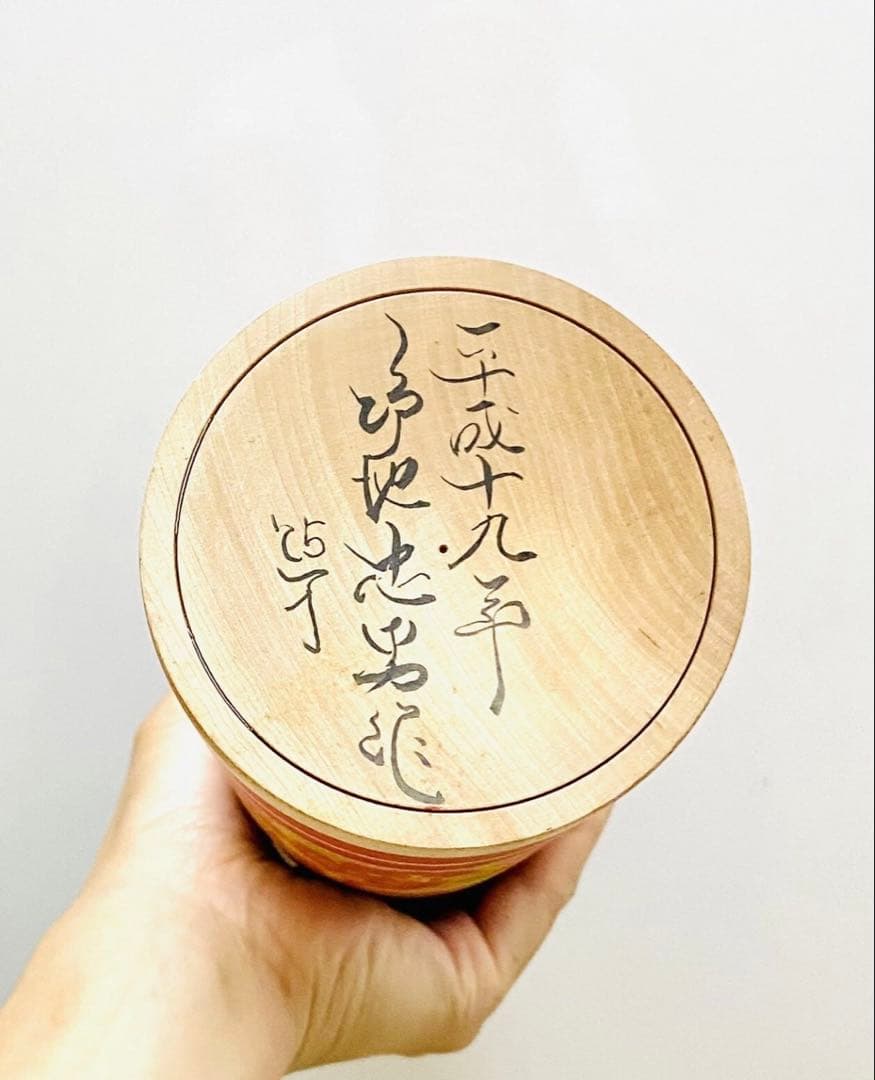 平成十九年
野地忠男作
75才